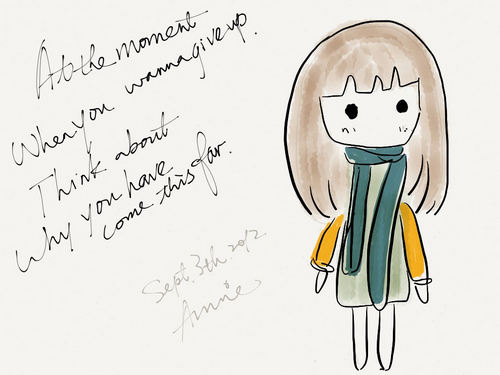 At the moment
When you wanna give up.
Think about
Why you have
come this far.
Sept. 3th. 2012
Annie